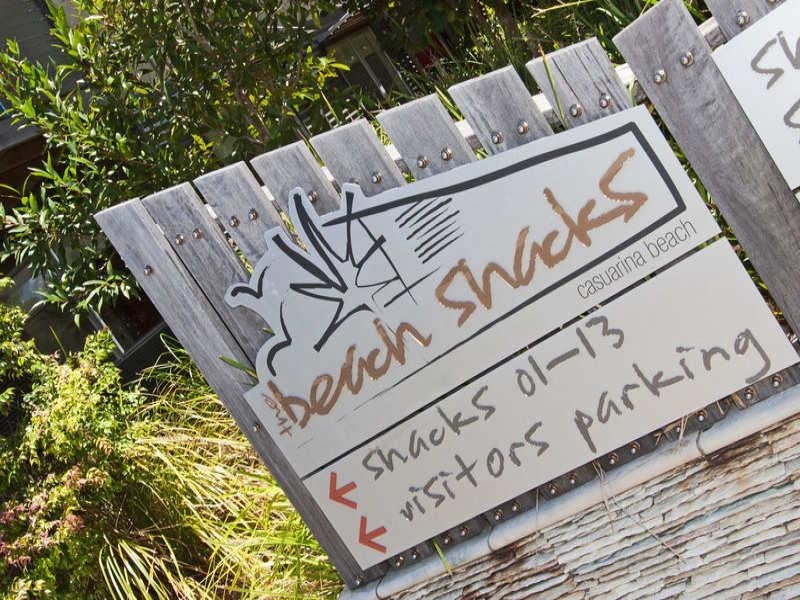 the beach shacks
casuarina beach
← shacks 01–13
← visitors parking